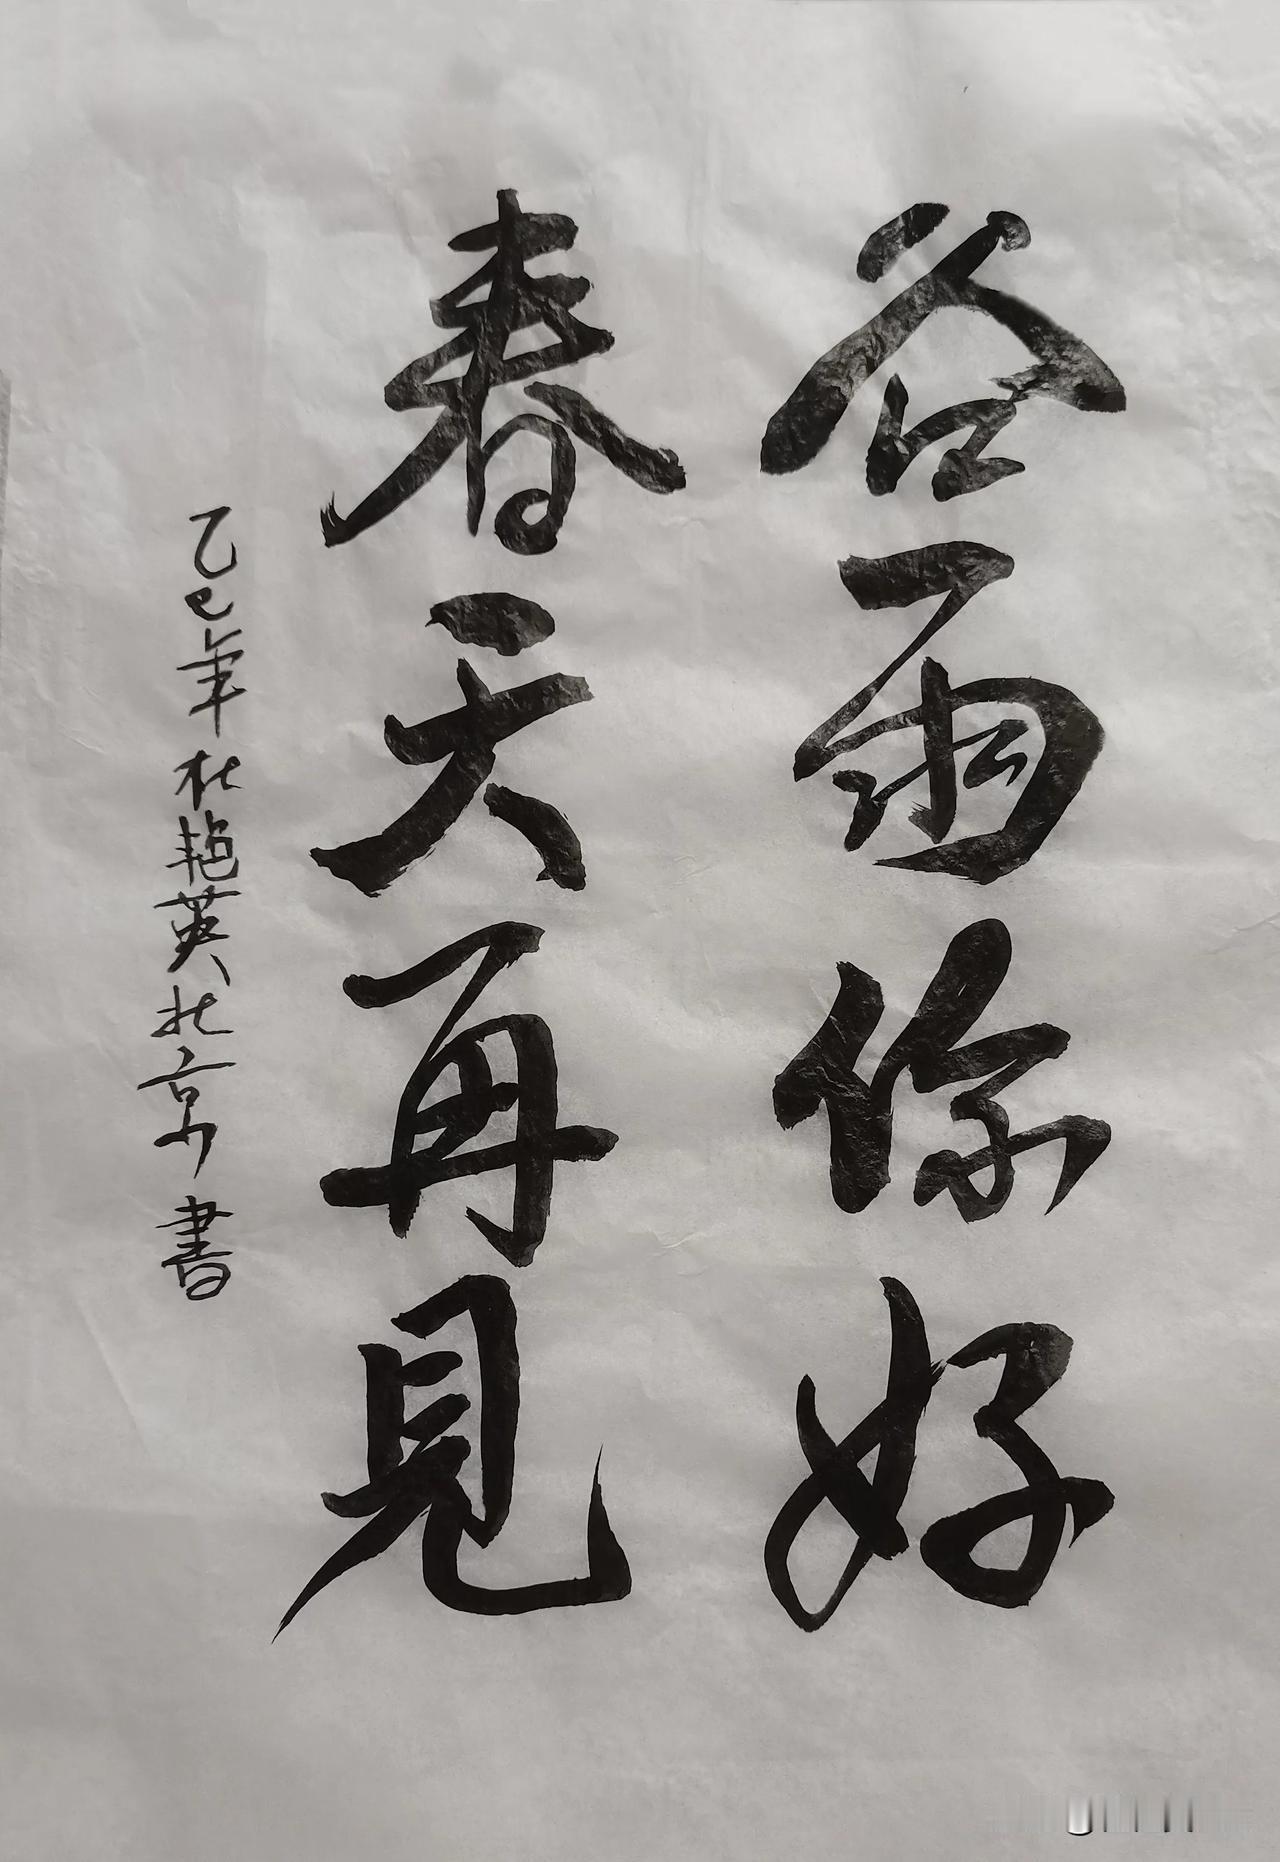 谷雨你好
春天再見
乙巳年杜艳英北京書